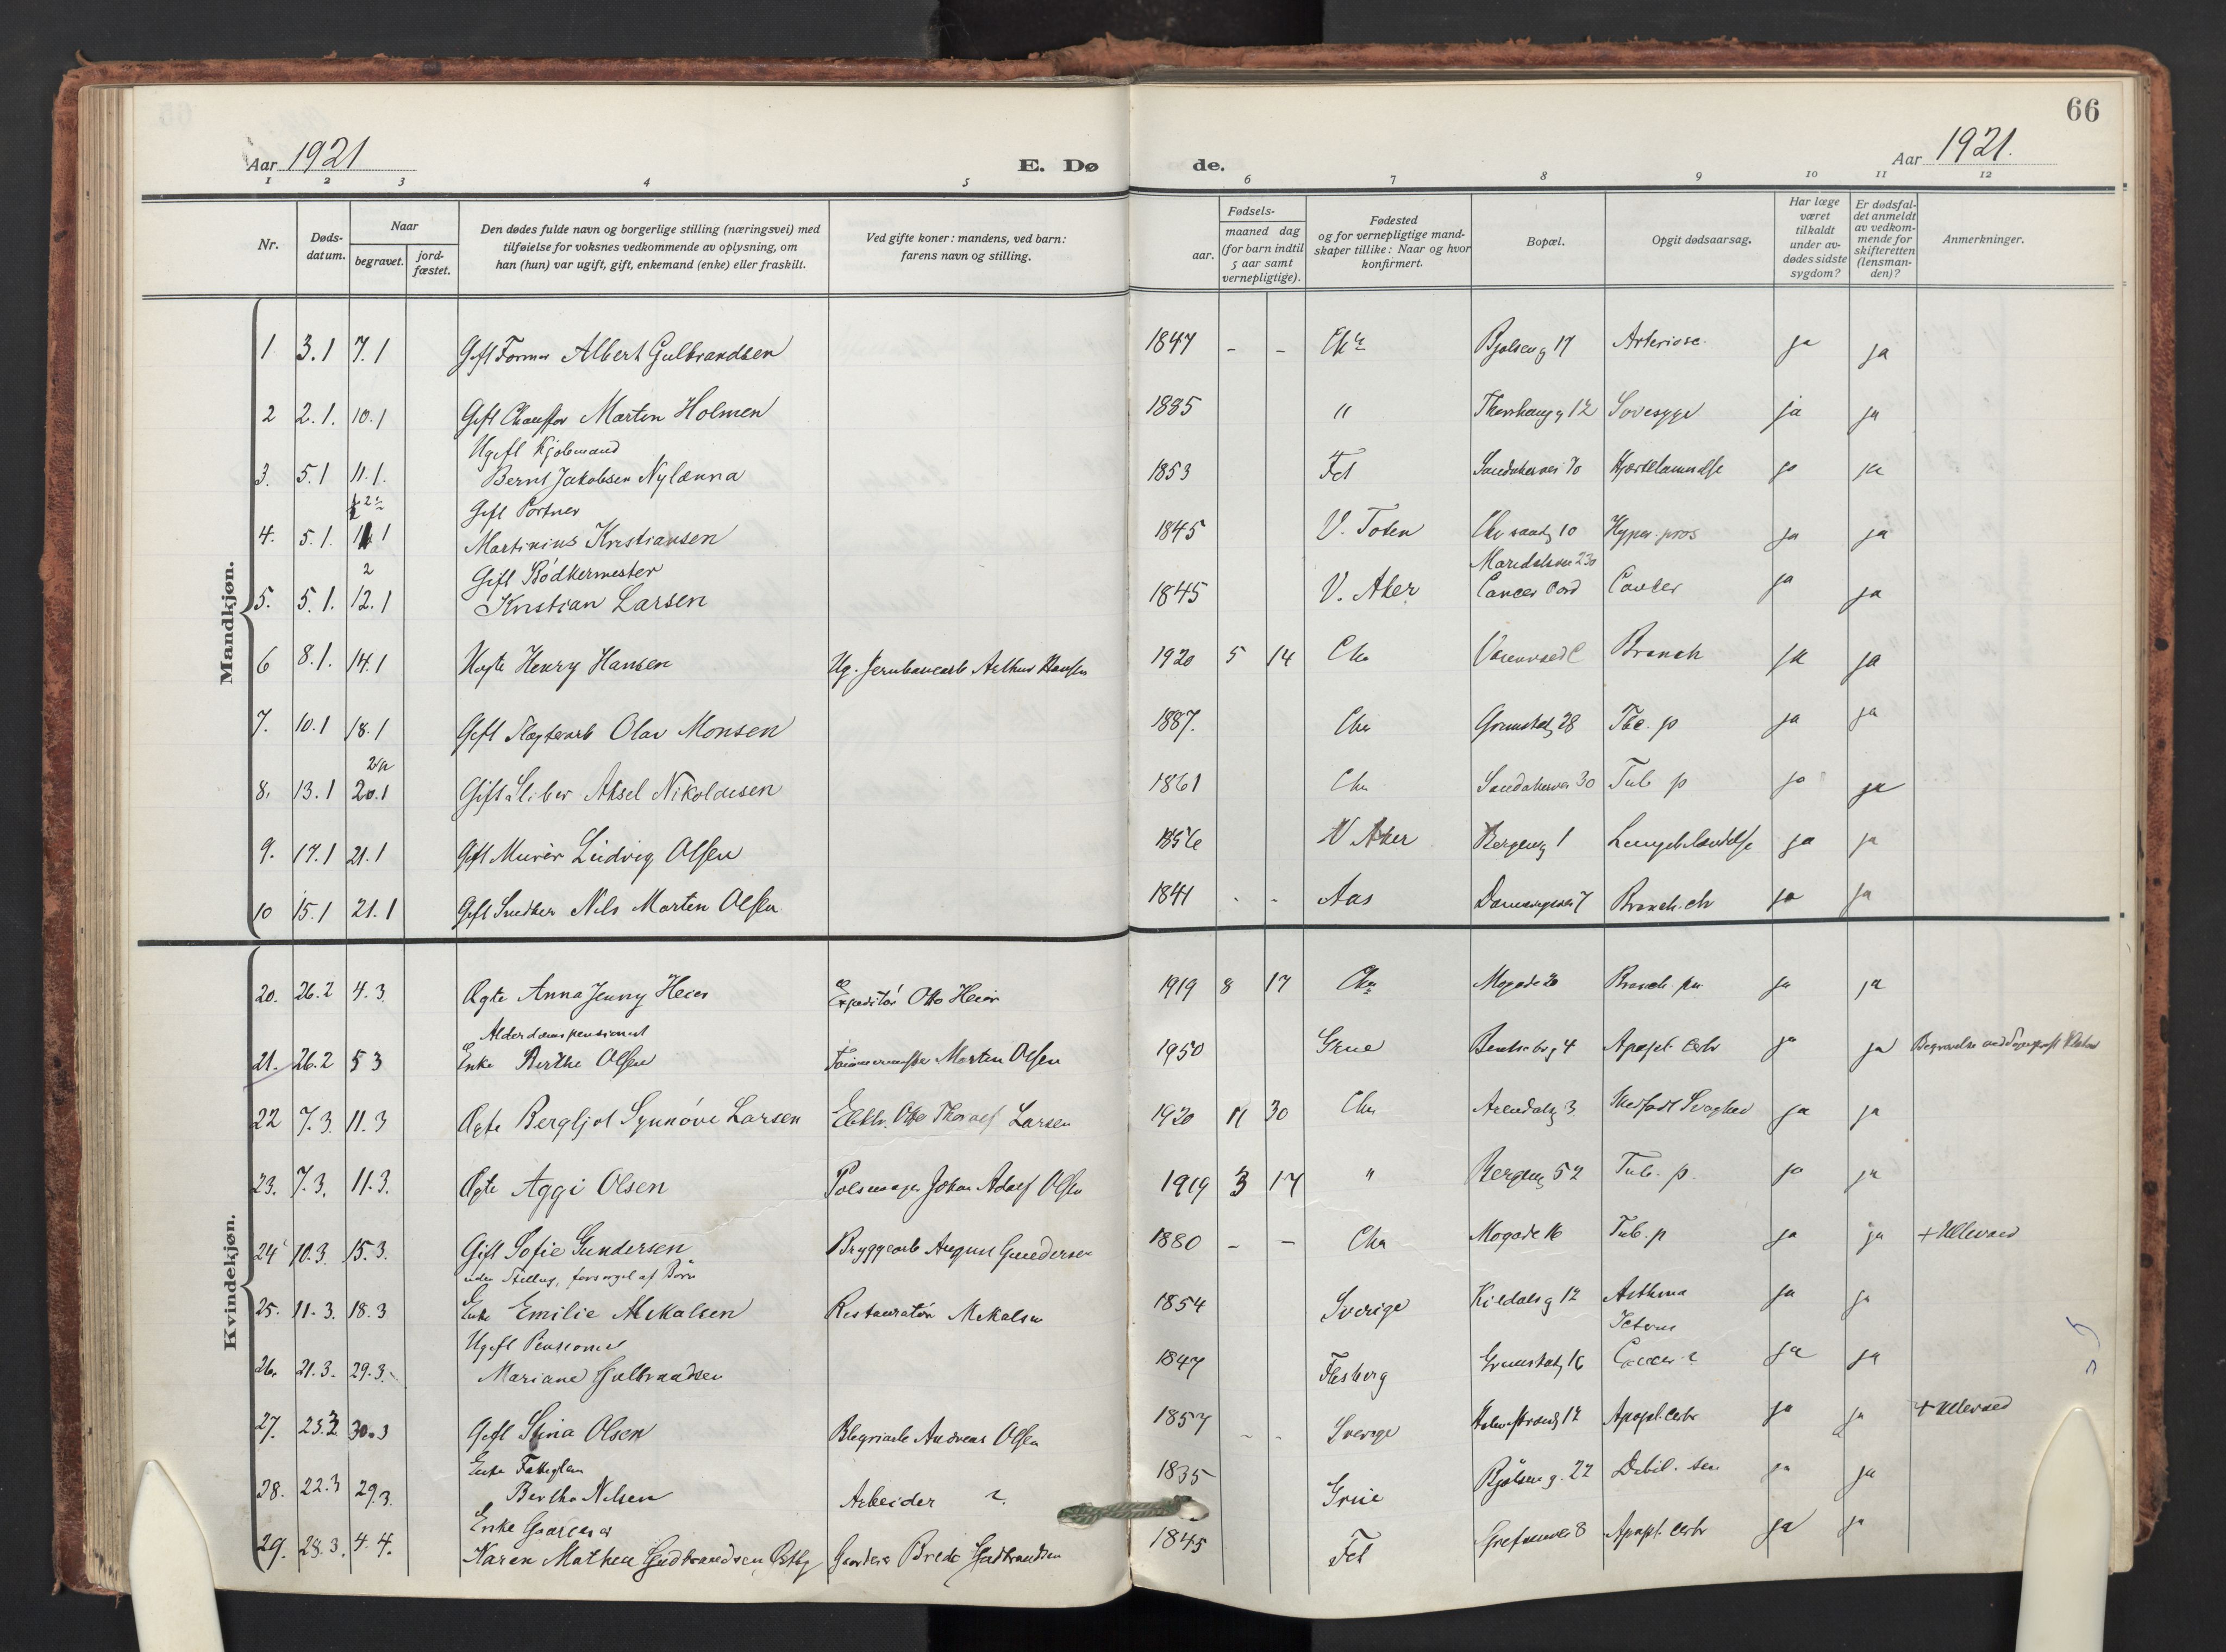 66
Aar 1921
E. Døde.
Aar 1921.
1 2 3 4 5 6 7 8 9 10 11 12
Nr.
Døds-datum.
Naar
begravet.
jord-fæstet.
Den dødes fulde navn og borgerlige stilling (næringsvei) med
tilføielse for voksnes vedkommende av oplysning, om
han (hun) var ugift, gift, enkemand (enke) eller fraskilt.
Ved gifte koner: mandens, ved barn:
farens navn og stilling.
Fødsels-
aar.
maaned dag
(for barn indtil
5 aar samt
vernepligtige).
Fødested
og for vernepligtige mand-
skaper tillike: Naar og hvor
konfirmert.
Bopæl.
Opgit dødsaarsag.
Har læge
været
tilkaldt
under av-
dødes sidste
sygdom?
Er dødsfal-
det anmeldt
av vedkom-
mende for
skifteretten
(lensman-
den)?
Anmerkninger.
Mandkjøn.
1 3.1 7.1 Gift Former Albert Gulbrandsen 1847 - - Chr Bjølseng 17 Arteriosc. ja ja
2 2.1. 10.1 Gift Chauffør Morten Holmen 1885 " 12 Sovesyge ja ja
Ugift Kjøbmand
3. 5.1 11.1. Bernt Jakobsen Nylænna 1853 Fet Sandakervei 70 Hjertelammelse ja ja
Gift Portner
4. 5.1. 1 Martinius Kristiansen 1845 V. Toten 10 ja ja
2 Gift Bødkermester Maridalsvei 230
5. 5.1. 12.1 Kristian Larsen 1845 V. Aker Cancer ja ja
6 8.1. 14.1 Uegte Henry Hansen Ug. Jernbanearb Arthur Hansen 1920 5 14 Cha Bronch ja ja
7. 10.1 18.1 Gift Olav Monsen 1887. Cha Grimstadg 28 Tbc. p ja ja
8. 13.1 20.1 Gift Sliber Aksel Nikolausen 1861 Cha Sandakervei 30 Tub p ja ja
9. 17.1 21.1 Gift Murer Ludvig Olsen 1856 V Aker Bergeng 1 Lungebetændelse ja ja
10 15.1 21.1 Gift Snedker Nils Morten Olsen 1841 - - Aas 7 Bronch. chr ja ja
Kvindekjøn.
20. 26.2 4.3 Ægte Anna Jenny Heier Expeditør Otto Heier 1919 8 17 Cha Mogade 20 Bronch. pn ja ja
Alderdomspensionist
21. 26.2 5 3 Enke Berthe Olsen Tømmermester Morten Olsen 1950 Grue Bentsebrg 4 Apopl. cerbr ja ja
22 7.3. 11.3 Ægte Bergljot Synnöve Larsen Elektr. Otto Thoralf Larsen 1920 11 30 Cha Arendalg 3. Medfødt Svaghed ja ja
23. 7.3. 11.3. Ægte Aggi Olsen Pølsemager Johan Adolf Olsen 1919 3 17 " Bergeng 52 Tub. p. ja ja
24 10.3. 15.3. Gift Sofie Gundersen Bryggearb August Gundersen 1880 - - Cha Mogade 16 Tub. p ja ja + Ullevaal
uden Stilling, forsørget af Børn
25. 11.3. 18.3 Enke Emilie Mikalsen Restauratør Mikalsen 1854 Sverige Kildalsg 12 Asthma ja ja
Ugift Pensionist Icterus
26. 21.3. 29.3. Mariane Gulbrandsen 1847 Flesberg Grimstadg 16 Cancer ja ja
27. 25.3 30.3 Gift Stina Olsen Andreas Olsen 1857 - - Sverige Holmestrandg 12 Apopl. cerbr ja ja + Ullevaal
Enke Fattiglem
28. 22.3 29.3. Bertha Nilsen Arbeider ?. 1835 Grue Bjølseng. 22 Debil. sen ja ja
Enke
29. 28.3. 4.4. Karen Mathea Gudbrandsen Østby Brede Gudbrandsen 1845 Fet Grefsenvei 8 Apopl. cerbr ja ja